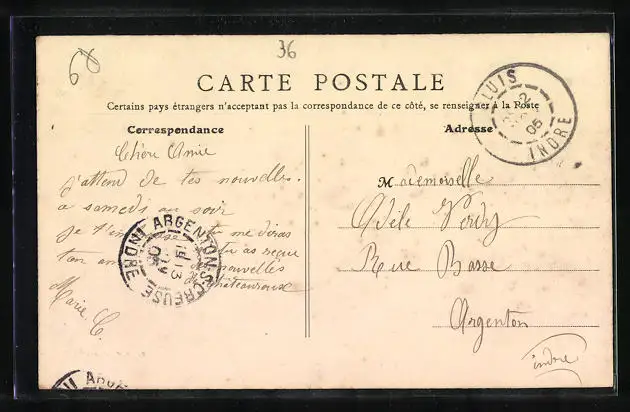 68
36
CARTE POSTALE
Certains pays étrangers n'acceptent pas la correspondance de ce côté, se renseigner à la Poste
Correspondance
Chère Amie
j'attend de tes nouvelles.
a samedi au soir
je t'en tu me diras
ton am tu as reçu
de nouvelles
de Châteauroux
Marie C.
ARGENTON-S-CREUSE
INDRE
05
ARGE
LUIS
INDRE
05
Adresse
Mademoiselle
Adèle
Rue Basse
Argenton
indre